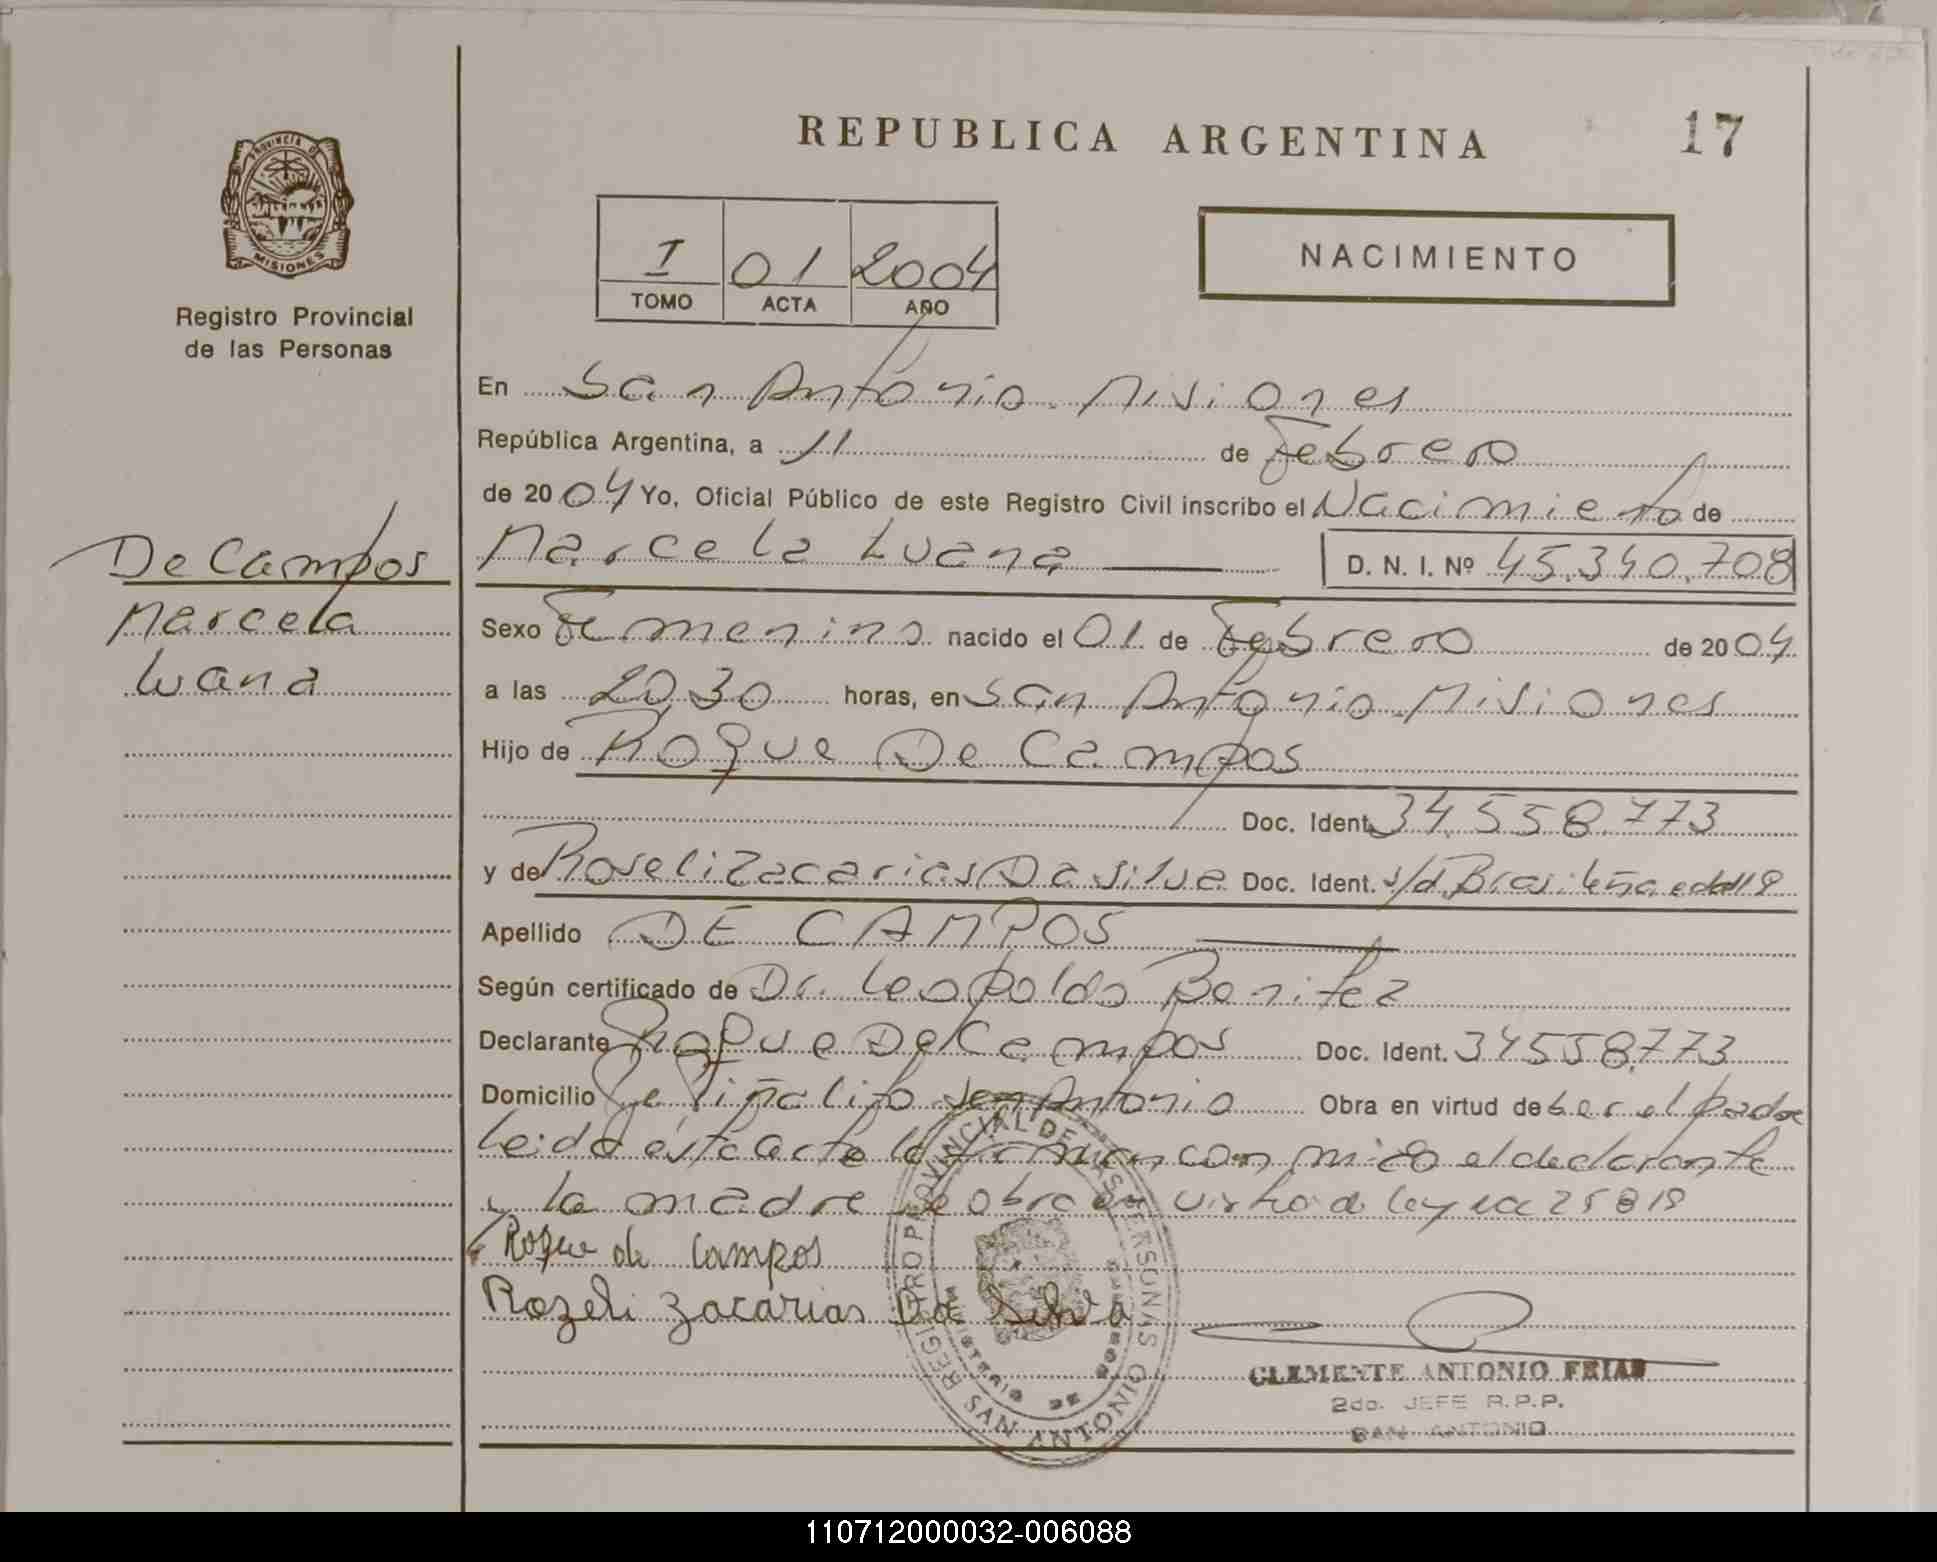 REPUBLICA ARGENTINA
17
PROVINCIA DE
MISIONES
Registro Provincial
de las Personas
I 01 2004
TOMO ACTA AÑO
NACIMIENTO
De Campos
Marcela
Luana
En San Antonio. Misiones
República Argentina, a 11 de Febrero
de 2004 Yo, Oficial Público de este Registro Civil inscribo el Nacimiento de
Marcela Luana D. N. I. Nº 45.340.708
Sexo Femenino nacido el 01 de Febrero de 2004
a las 20,30 horas, en San Antonio. Misiones
Hijo de Roque De Campos
Doc. Ident. 34.558.773
y de Roseli Zacarias Da Silva Doc. Ident. s/d. Brasileña edad 18
Apellido DE CAMPOS
Según certificado de Dr. Leopoldo Benitez
Declarante Roque De Campos Doc. Ident. 34558.773
Domicilio Piñalito San Antonio Obra en virtud de ser el padre
Leida ésta acta la firman con migo el declarante
y la madre se obra en virtud de ley 25819
Roque de Campos
Rozeli Zacarias Da Silva
REGISTRO PROVINCIAL DE LAS PERSONAS
MINISTERIO DE
SAN ANTONIO
CLEMENTE ANTONIO FRIAS
2do. JEFE R.P.P.
SAN ANTONIO
110712000032-006088